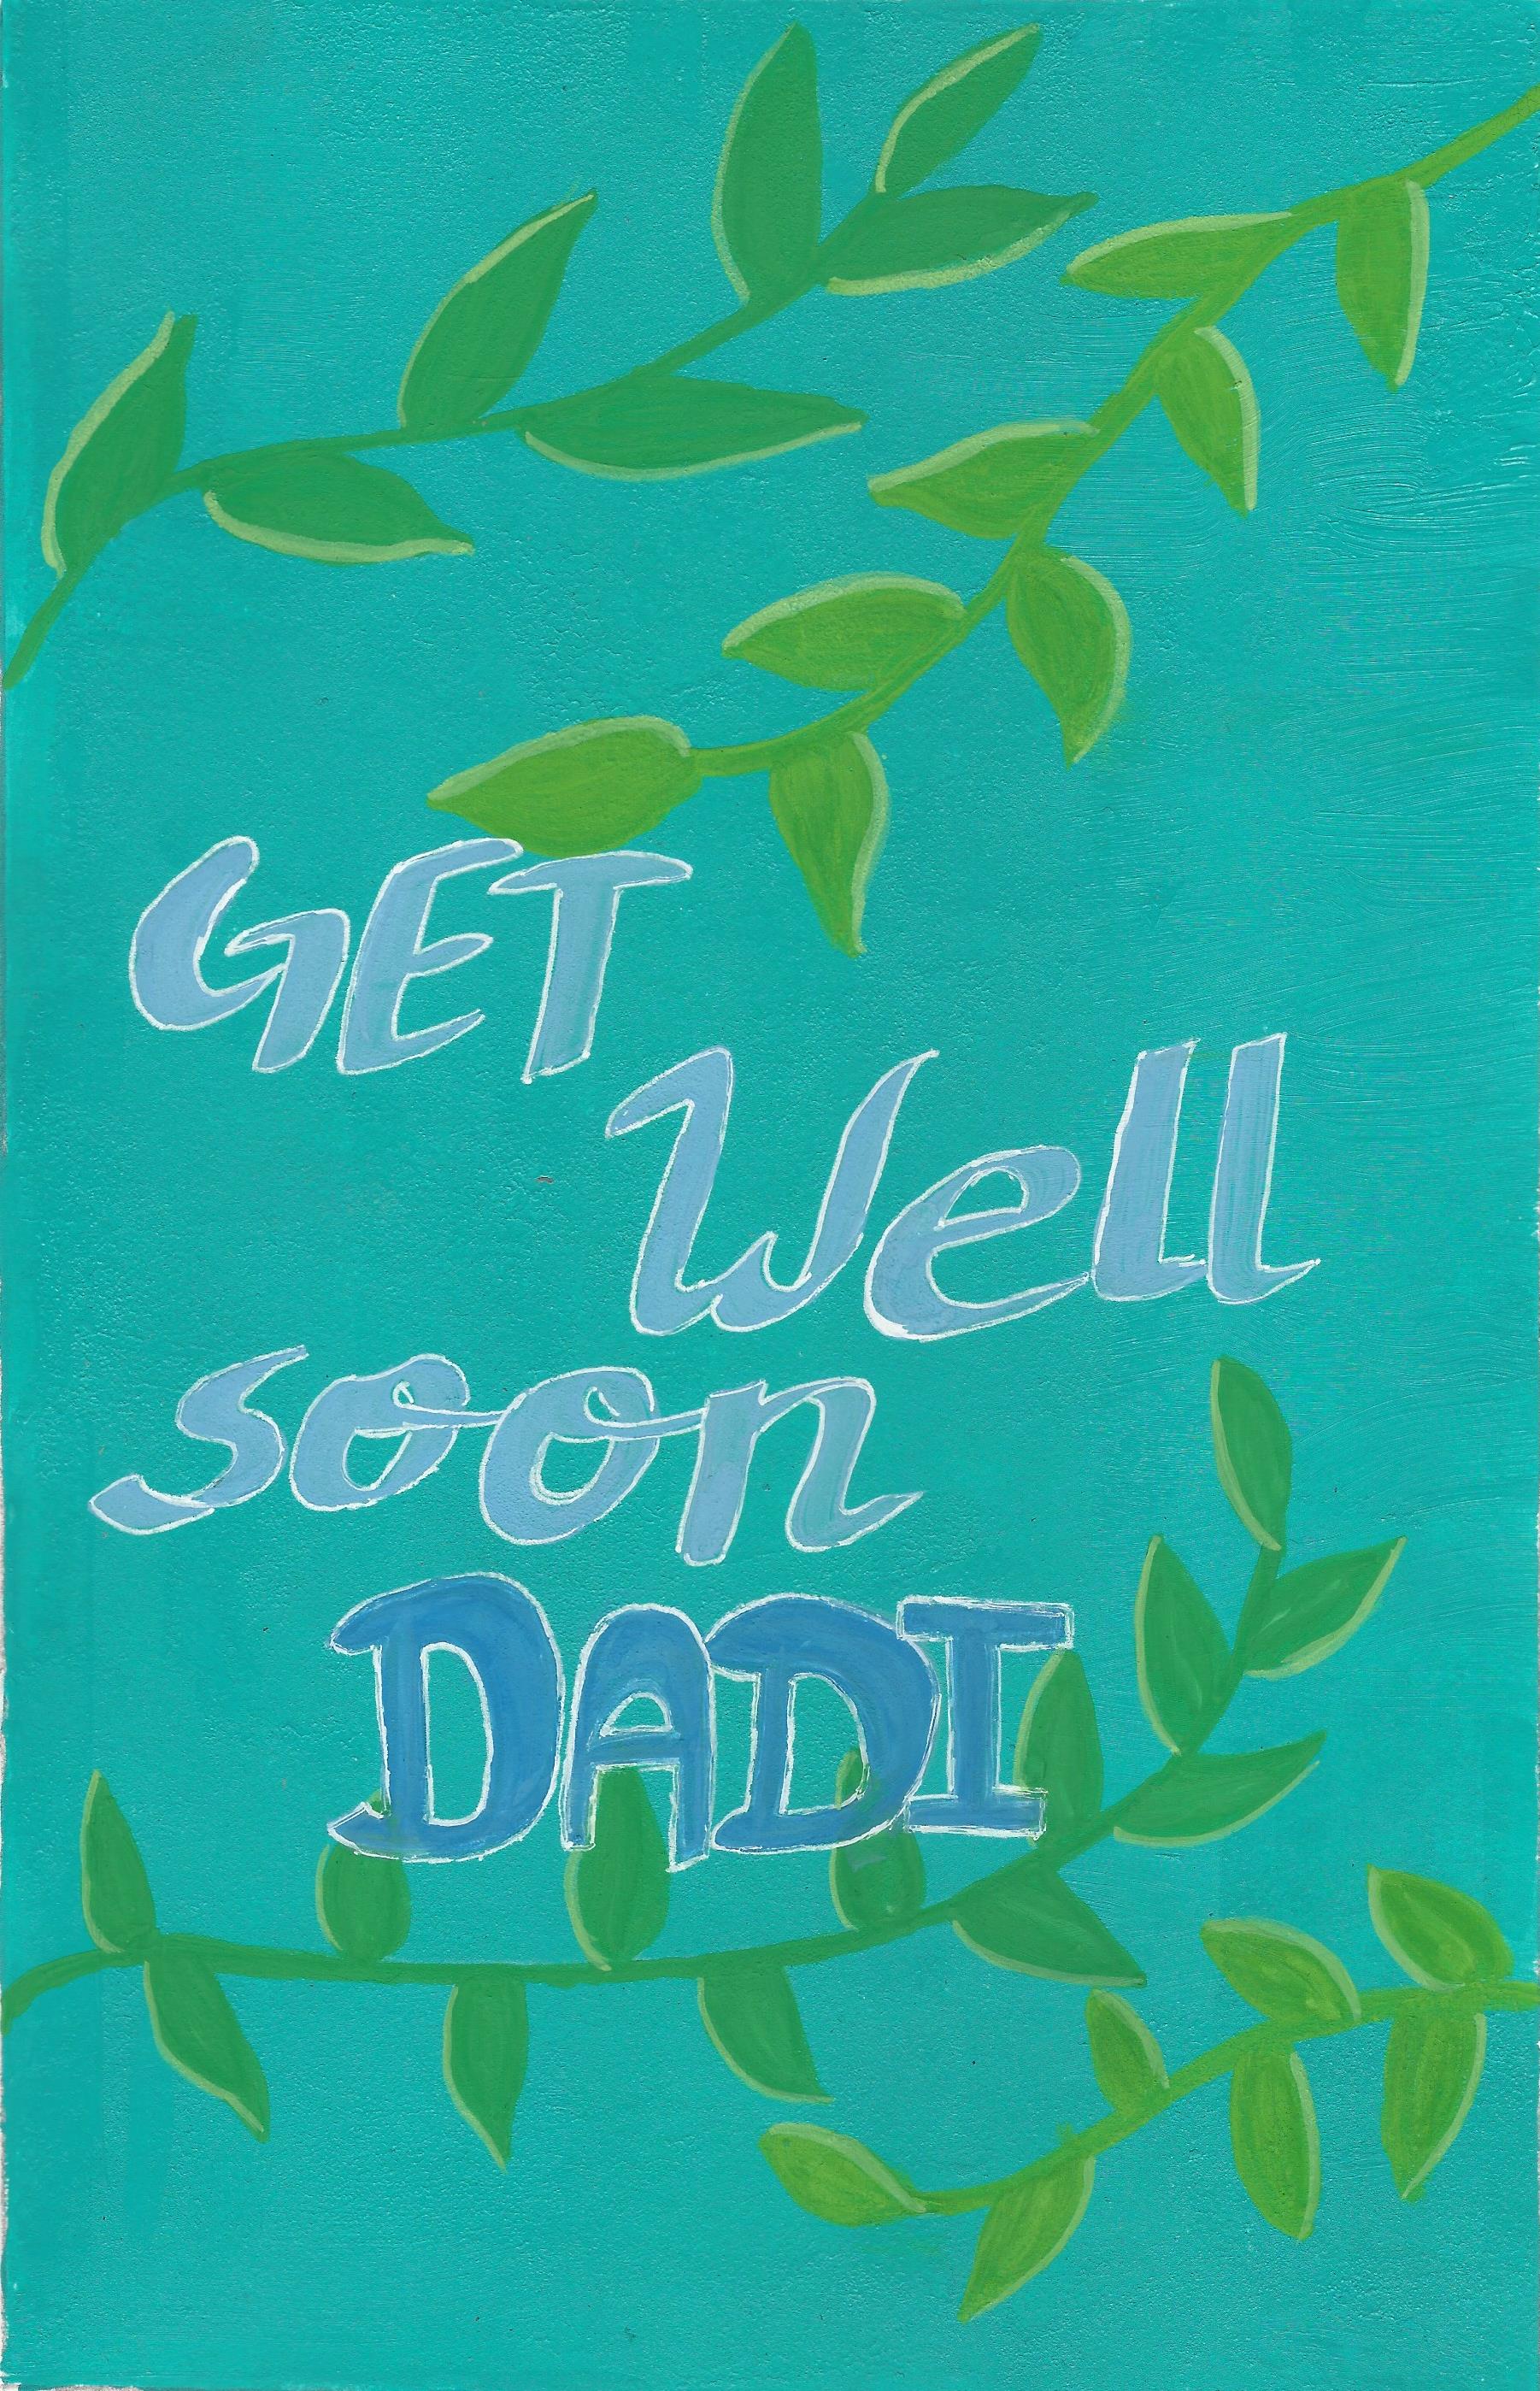 GET
Well
soon
DADI